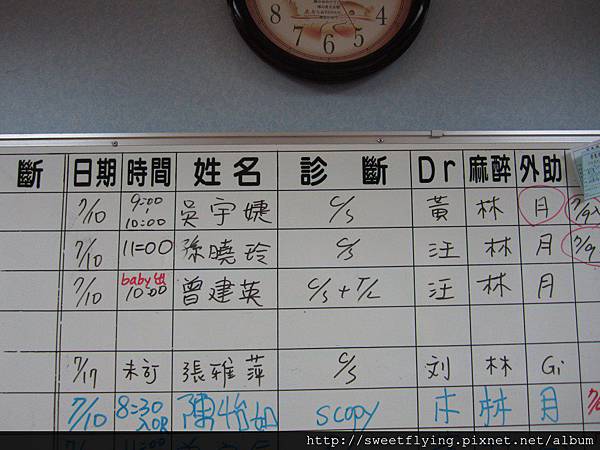 8 7 6 5 4
斷 日期 時間 姓名 診斷 Dr 麻醉 外助
7/10 9:00 | 10:00 吳宇婕 C/S 黃 林 月 7/9入
7/10 11=00 孫曉玲 C/S 汪 林 月 7/9
7/10 baby出 10:00 曾建英 C/S+T/L 汪 林 月
7/17 未訂 張雅萍 C/S 刘 林 Gi
7/10 8=30 入OR 陳怡如 scopy 木 林 月
11:00
http://sweetflying.pixnet.net/album